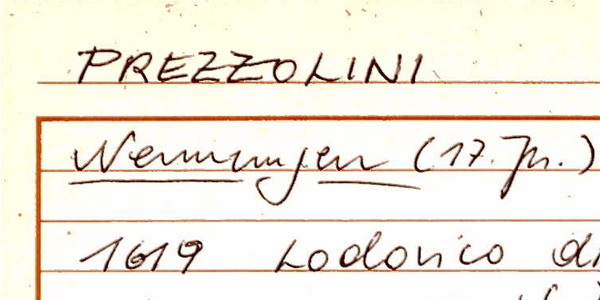 PREZZOLINI
Nennungen (17. Jh.)
1619 Lodovico di